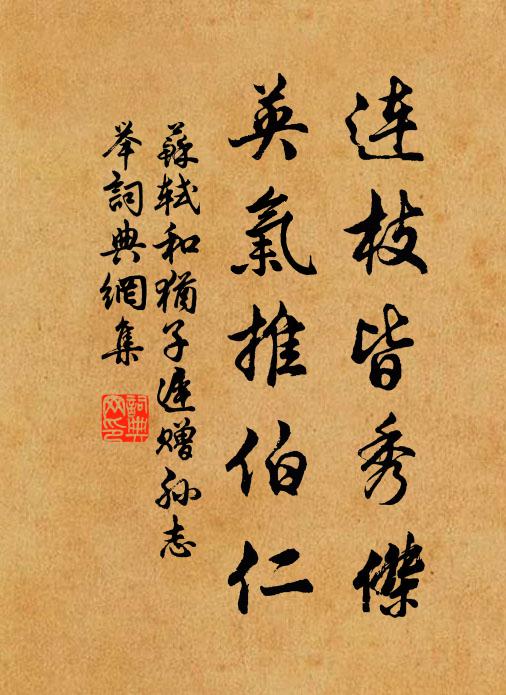 連枝皆秀傑
英氣推伯仁
蘇軾和猶子遲贈孫志
举詞典網集
詞典
网印